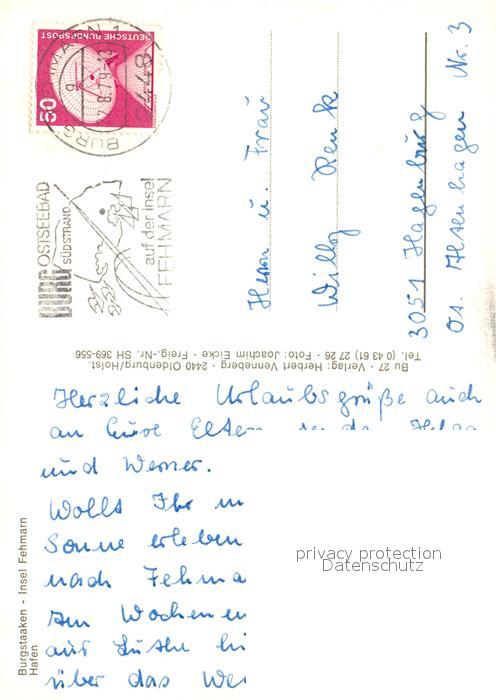 DEUTSCHE BUNDESPOST
50
BURG
OSTSEEBAD
SÜDSTRAND
BURG
auf der Insel
FEHMARN
Herrn u. Frau
Willy Renk
3051 Hagenburg
Or. Altenhagen Nr. 3
Bu 27 · Verlag: Herbert Venneberg · 2440 Oldenburg/Holst.
Tel. (0 43 61) 27 26 · Foto: Joachim Eicke · Freig.-Nr. SH 369-556
Herzliche Urlaubsgrüße auch
an Eure Eltern
und Werner.
Wollt Ihr
Sonne erleben
nach Fehma
Am Wochenen
aus
über das We
Burgstaaken - Insel Fehmarn
Hafen
privacy protection
Datenschutz